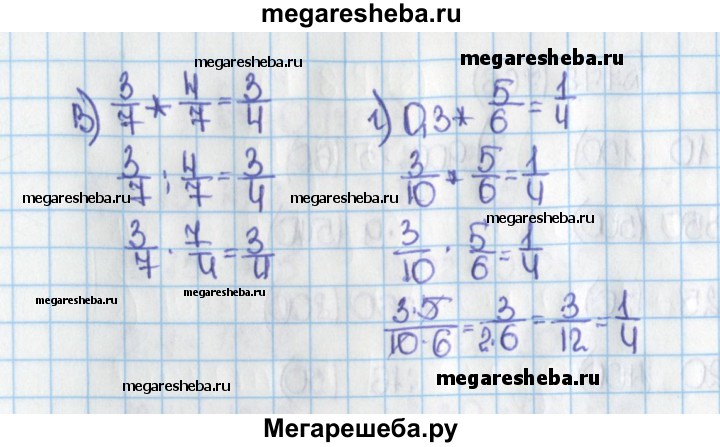 megaresheba.ru
megaresheba.ru
megaresheba.ru
в) 3/7 * 4/7 = 3/4
3/7 : 4/7 = 3/4
3/7 · 7/4 = 3/4
г) 0,3 * 5/6 = 1/4
3/10 * 5/6 = 1/4
3/10 · 5/6 = 1/4
3·5/10·6 = 3/2·6 = 3/12 = 1/4
megaresheba.ru
megaresheba.ru
megaresheba.ru
megaresheba.ru
megaresheba.ru
megaresheba.ru
megaresheba.ru
megaresheba.ru
Мегарешеба.ру